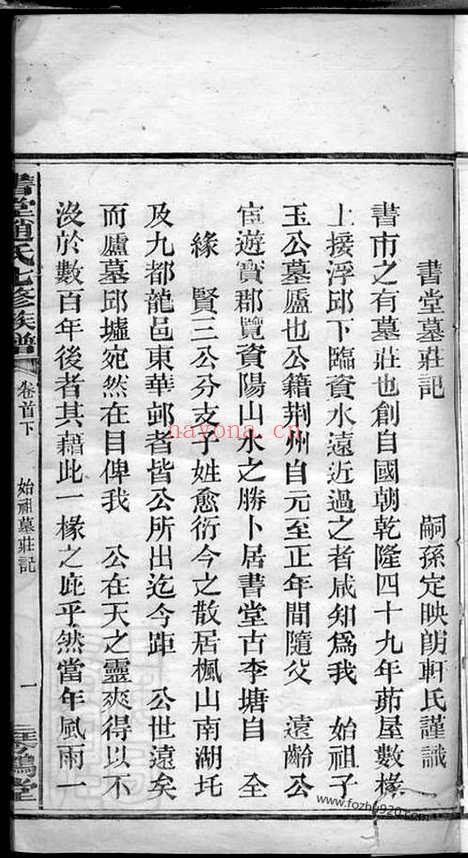 書堂墓莊記　嗣孫定映朗軒氏謹識
書市之有墓莊也創自國朝乾隆四十九年茆屋數椽
上接浮邱下臨資水遠近過之者咸知爲我　始祖子
玉公墓廬也公籍荆州自元至正年間隨父　遠齡公
宦遊寶郡覽資陽山水之勝卜居書堂古李塘自　全
緣　賢三公分支子姓愈衍今之散居楓山南湖坵
及九都龍邑東華邮者皆公所出迄今距　公世遠矣
而廬墓邱墟宛然在目俾我　公在天之靈爽得以不
沒於數百年後者其藉此一椽之庇乎然當年風雨一
書堂趙氏七修族譜
卷首下
始祖墓莊記
一
琴鶴堂
nayona.cn
www.fozhu920.com